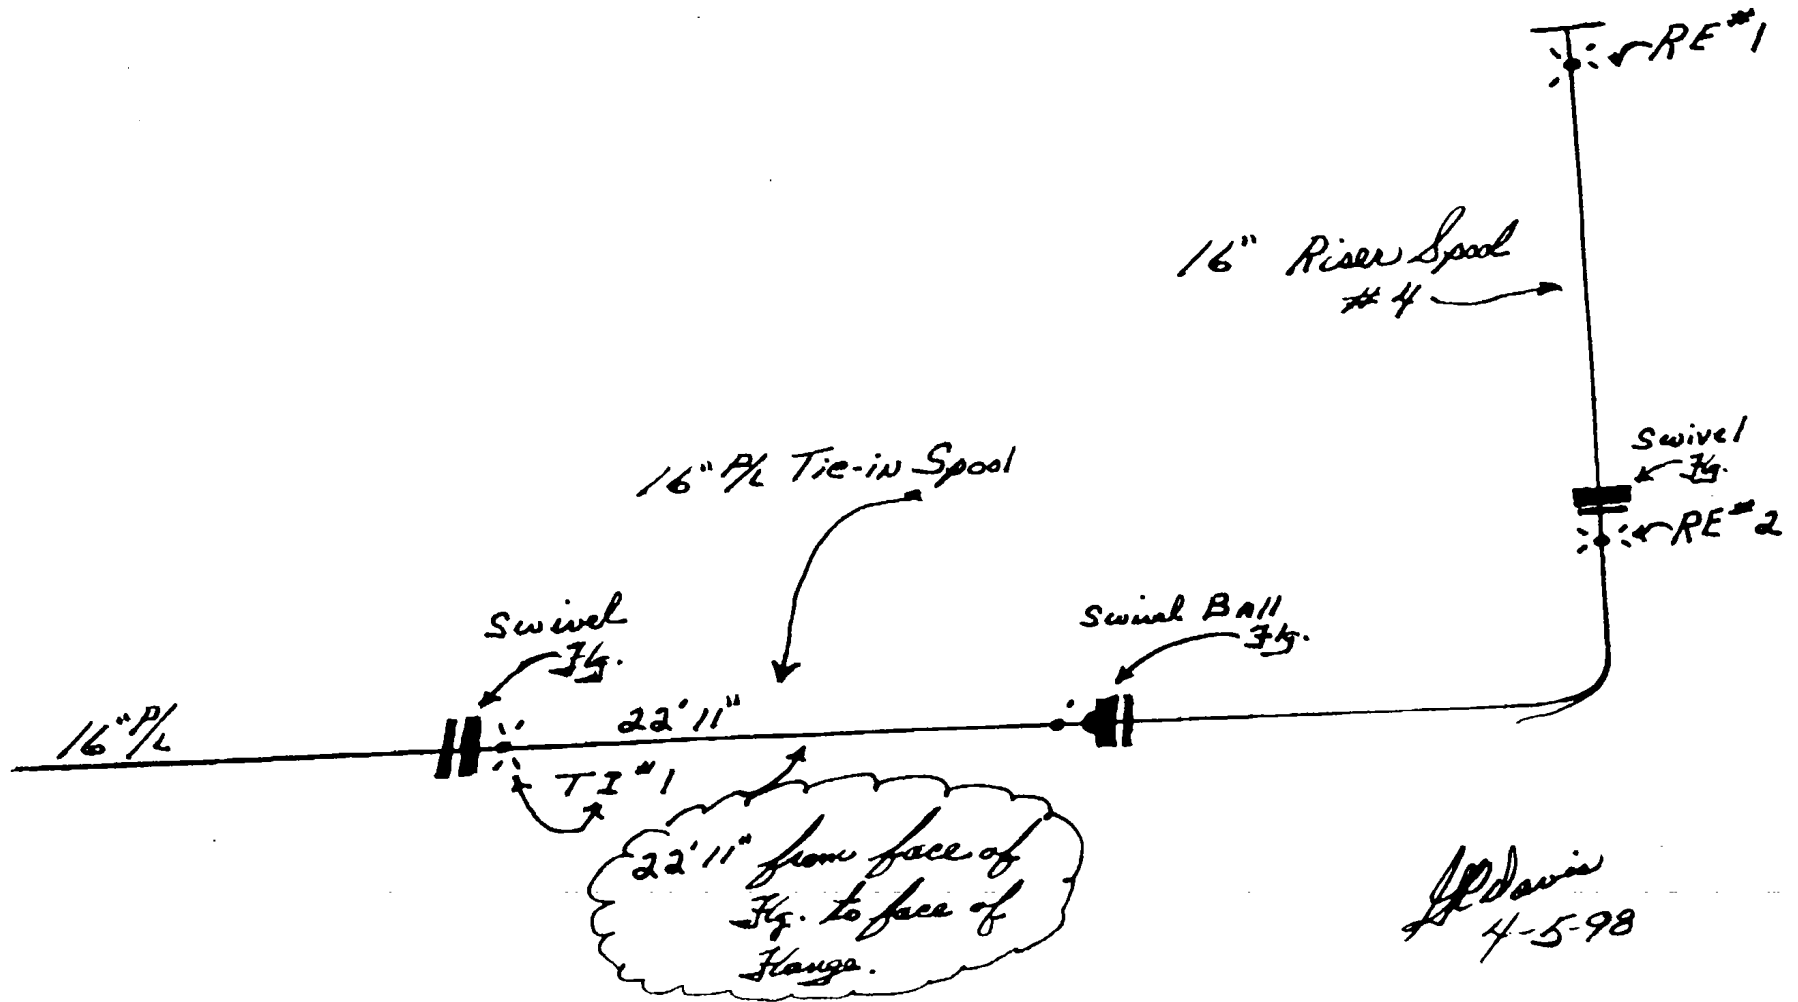 RE #1
16" Riser Spool
#4
Swivel
Flg.
RE #2
16" P/L Tie-in Spool
Swivel
Flg.
Swivel Ball
Flg.
16" P/L
22' 11"
TI #1
22' 11" from face of
Flg. to face of
Flange.
Davis
4-5-98